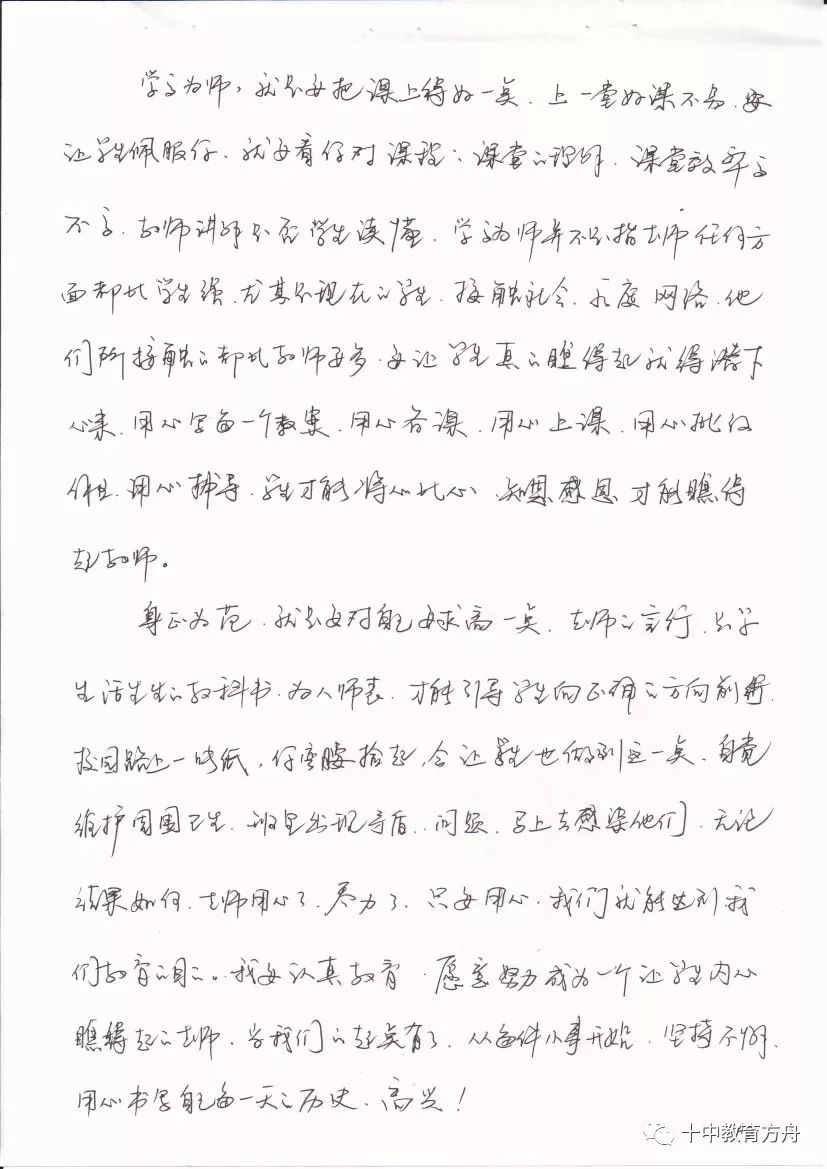 学高为师,就是要把课上得好一点.上一堂好课不易.要
让学生佩服你.就要看你对课程、课堂的理解.课堂效率高
不高.教师讲解是否学生读懂.学高为师并不是指老师任何方
面都比学生强.尤其是现在的学生.接触社会.百度网络.他
们所接触的都比教师要多.要让学生真的瞧得起就得潜下
心来.用心写每一个教案.用心备课.用心上课.用心批改
作业.用心辅导.学生才能将心比心、知恩感恩才能瞧得
起教师。
身正为范.就是要对自己要求高一点.老师的言行.是学
生活生生的教科书.为人师表.才能引导学生向正确的方向前进.
校园路上一块纸,你弯腰拾起,会让学生也做到这一点.自觉
维护周围卫生.班里出现矛盾..问题.马上去感染他们.无论
结果如何.老师用心了.尽力了.只要用心.我们就能达到我
们教育的目的。我要认真教育.愿意努力成为一个让学生内心
瞧得起的老师.当我们的起点有了.从每件小事开始.坚持不懈.
用心书写自己每一天的历史.高兴!
十中教育方舟